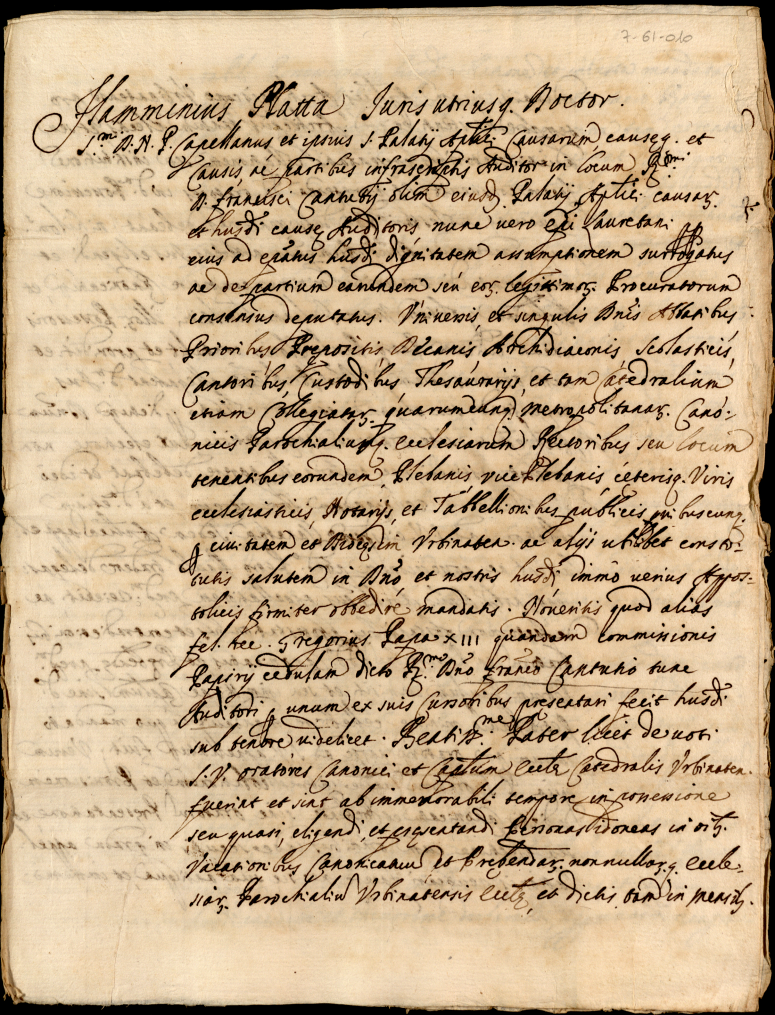 7-61-010
Flamminius Platta Juris utriusq. Doctor.
S.mi D. N. P. Capellanus et ipsius S. Palatij Aplici Causarum causeq. et
Causis, ac partibus infrascriptis Auditor in locum R.mi
D. Francisci Cantutij olim eiusd. Palatij Aplici causar.
et husdi cause Auditoris nunc vero Epi lauretani
eius ad epatus husdi dignitatem assumptionem surrogatus
ac de partium earundem seu eor. legitimor. Procuratorum
consensus deputatus. Universis et singulis Dnis Abbatibus
Prioribus Prepositis Decanis Archidiaconis, scolasticis,
Cantoribus Custodibus Thesaurarijs, et tam Catedralium
etiam Collegiatar. quarumcunq. metropolitanar. Cano-
nicis Parochialiumq. ecclesiarum Rectoribus seu locum
tenentibus eorundem, Plebanis vice Plebanis ceterisq. Viris
ecclesiasticis, Notarijs, et Tabbellionibus publicis quibuscunq.
p civitatem et Diocesim Urbinaten. ac alijs ubilibet consti-
tutis salutem in Dno et nostris husdi immo verius Appos-
tolicis firmiter obbedire mandatis. Noveritis quod alias
fel. rec. Gregorius Papa XIII quandam commissionis
Papirij cedulam dicto R.mo Dno Franco Cantutio tunc
Auditori p unum ex suis Cursoribus presentari fecit husdi
sub tenore videlicet. Beatiss.me Pater licet devoti
S. V. oratores Canonici et Captum eccle Catedralis Urbinaten.
fuerint et sint ab immemorabili tempore in possessione
seu quasi, eligendi, et presentandi personas idoneas in
Vacationibus Canonicatuu et Prebendar. nonnullar.q. eccle-
siar. Parochialiu Urbinatensis eccle, et dictis tam in mensib.